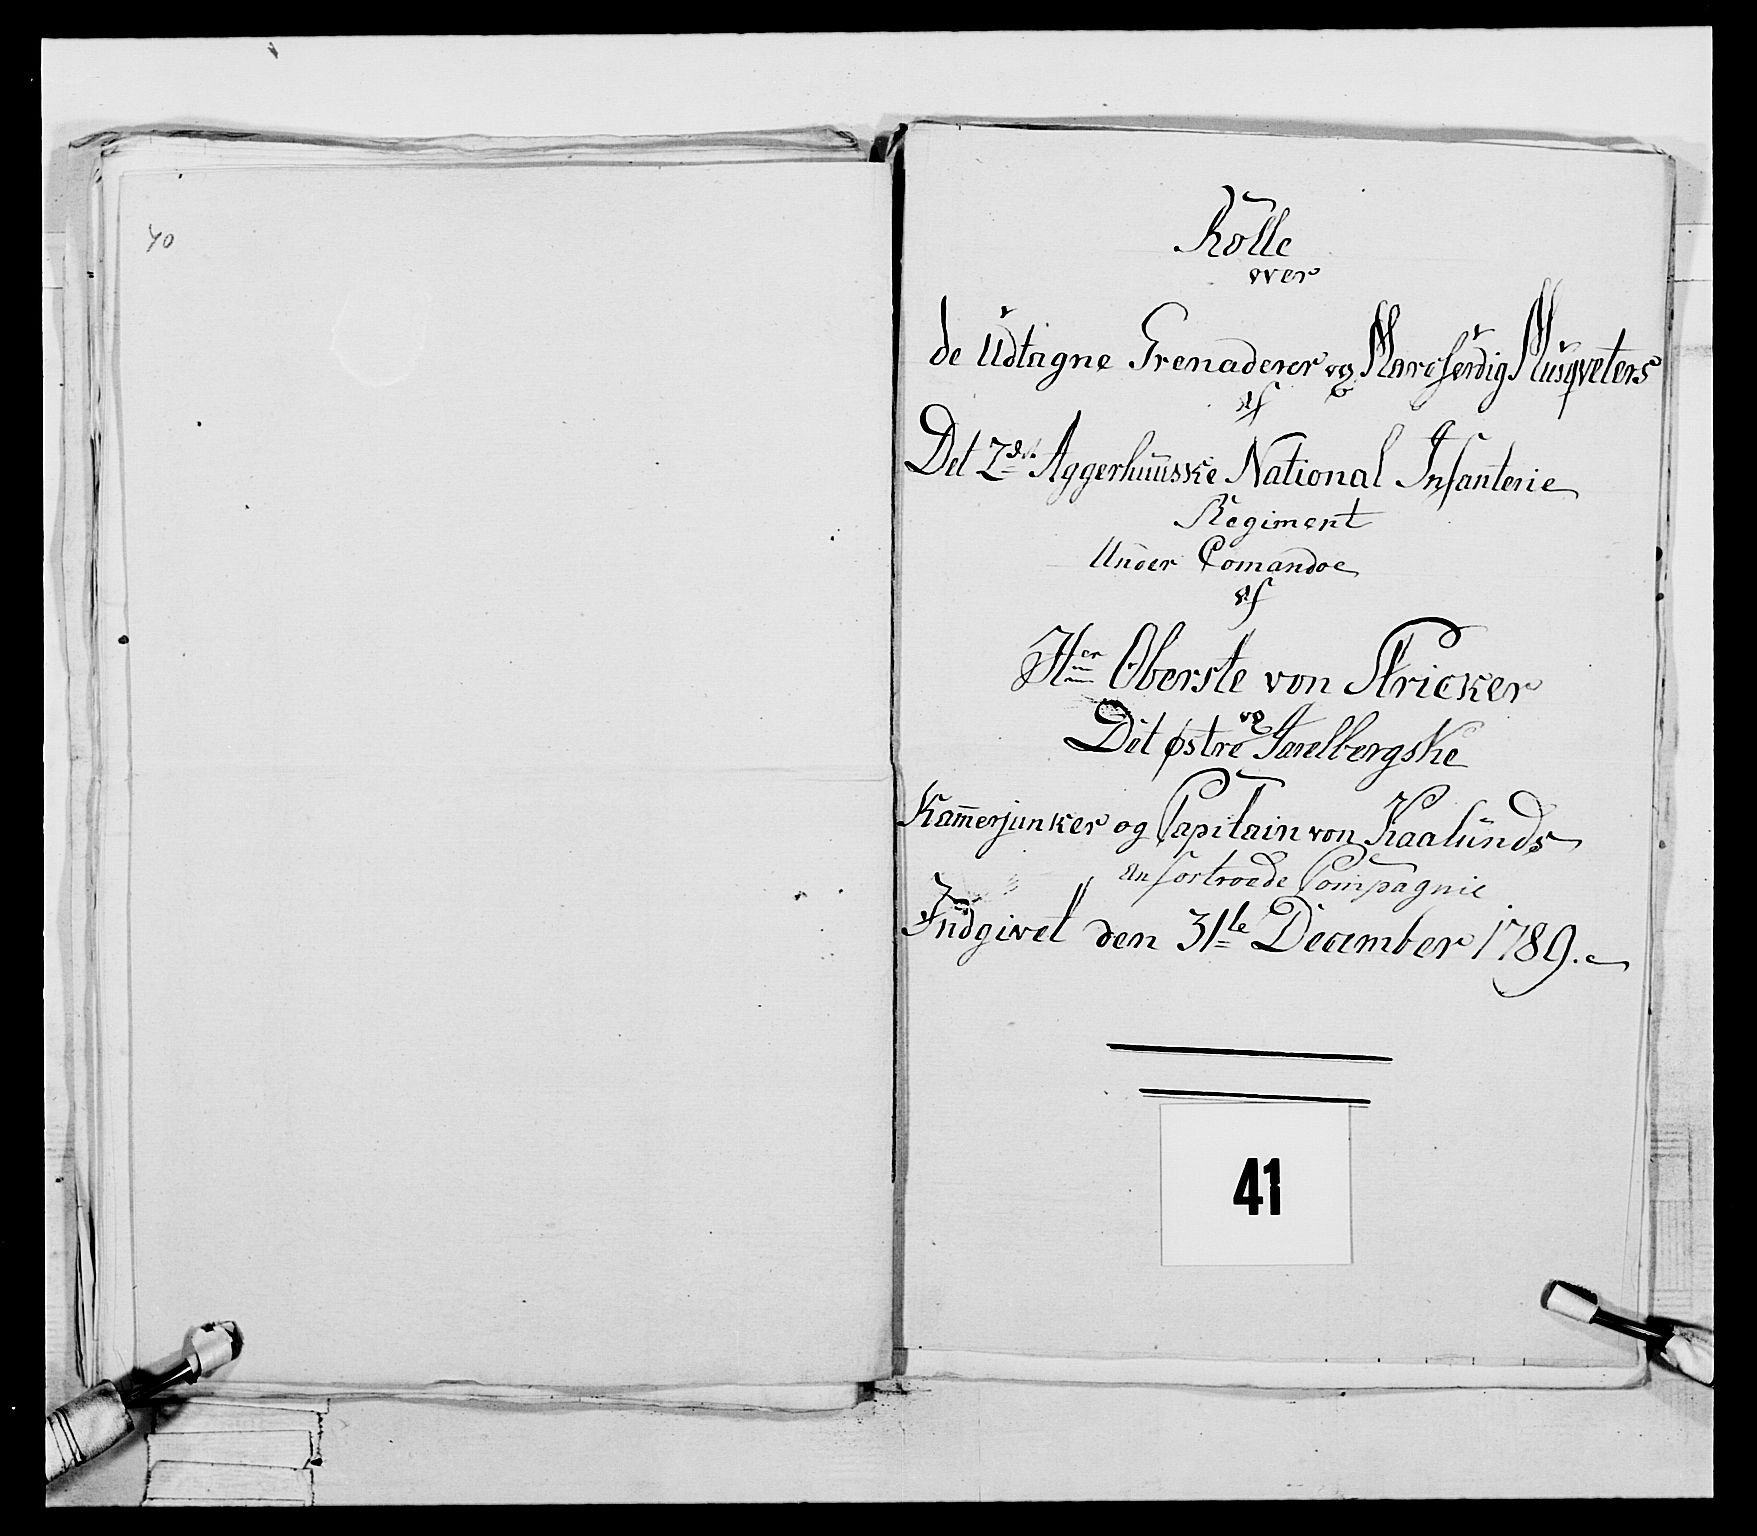 40
Rolle
over
de Udtagne Grenaderer og Marchfærdig Musqveters
af
Det 2det Aggerhuusske National Infanterie
Regiment
Under Comandoe
af
Hrr Oberste von Stricker
Det østre og Jarelbergske
Kam̄erjunker og Capitain von Kaalunds
An fortroede Compagnie
Indgivet den 31te December 1789.
41